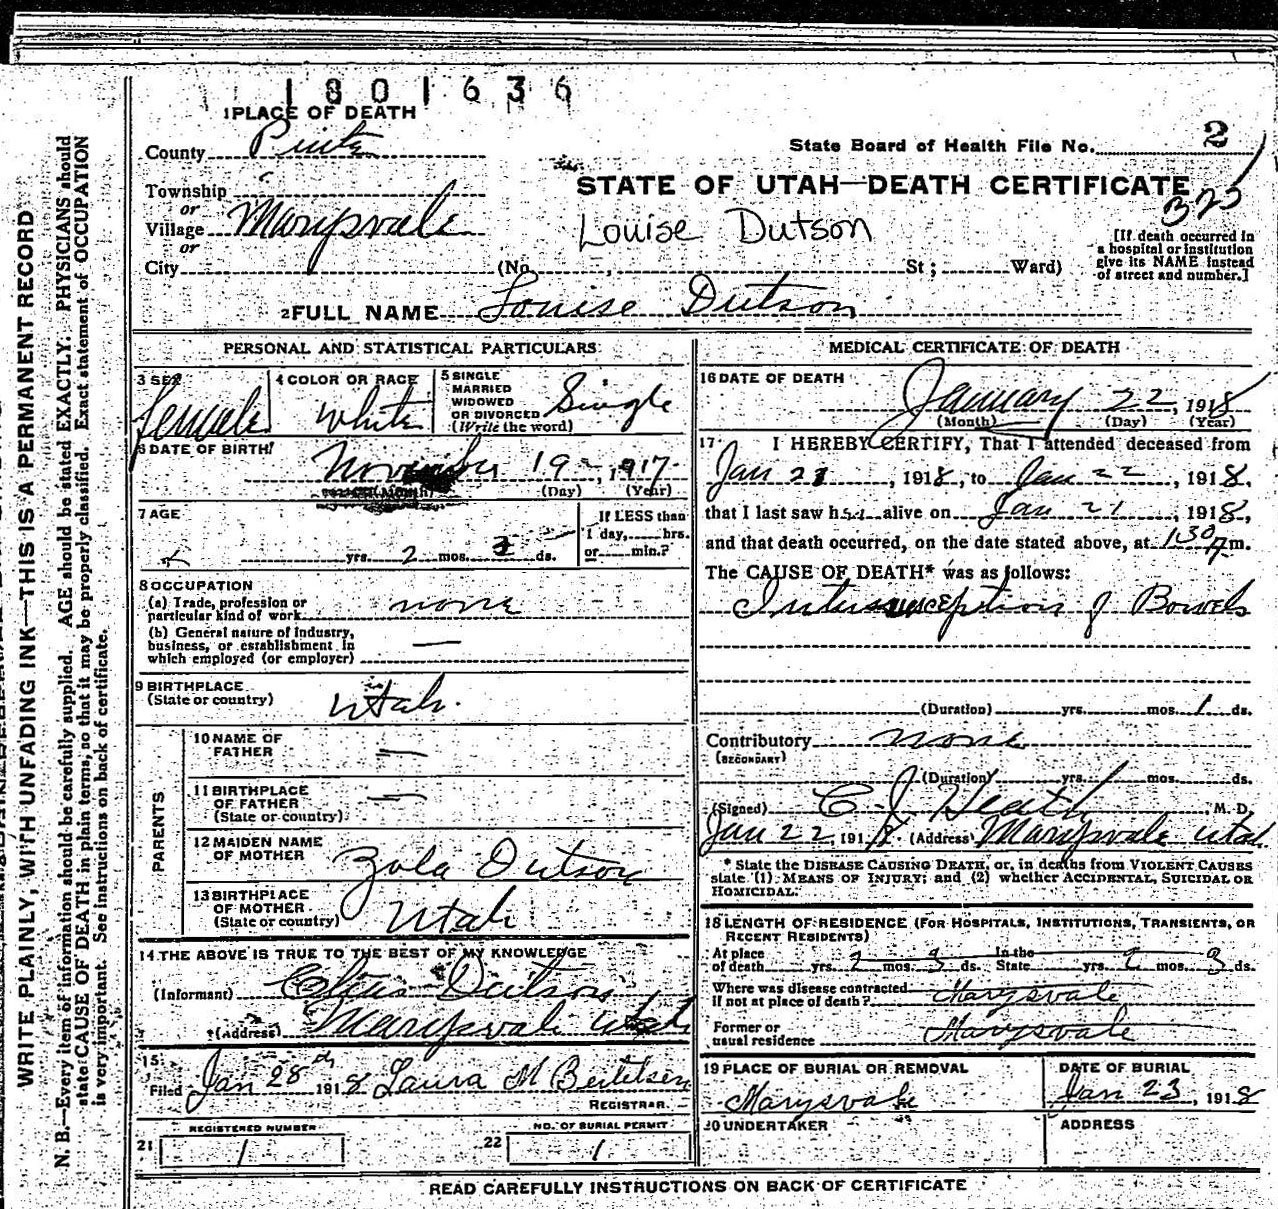 1801636
1 PLACE OF DEATH
County Piute
State Board of Health File No. 2
Township
or
Village Marysvale
or
City (No. , St ; Ward)
STATE OF UTAH—DEATH CERTIFICATE
325
Louise Dutson
[If death occurred in
a hospital or institution
give its NAME instead
of street and number.]
2 FULL NAME Louise Dutson
PERSONAL AND STATISTICAL PARTICULARS
3 SEX female
4 COLOR OR RACE White
5 SINGLE
MARRIED
WIDOWED
OR DIVORCED
(Write the word) Single
6 DATE OF BIRTH
November 19, 1917
(Month) (Day) (Year)
7 AGE
yrs. 2 mos. 3 ds.
If LESS than
1 day, hrs.
or min.?
8 OCCUPATION
(a) Trade, profession or
particular kind of work none
(b) General nature of industry,
business, or establishment in
which employed (or employer) —
9 BIRTHPLACE
(State or country) Utah.
PARENTS
10 NAME OF
FATHER —
11 BIRTHPLACE
OF FATHER
(State or country) —
12 MAIDEN NAME
OF MOTHER Zola Dutson
13 BIRTHPLACE
OF MOTHER
(State or country) Utah
14 THE ABOVE IS TRUE TO THE BEST OF MY KNOWLEDGE
(Informant) Dutson
(Address) Marysvale Utah
15
Filed Jan 28 1918 Laura M Bertelsen
REGISTRAR.
21 REGISTERED NUMBER
1
22 NO. OF BURIAL PERMIT
1
MEDICAL CERTIFICATE OF DEATH
16 DATE OF DEATH
January 22, 1918
(Month) (Day) (Year)
17 I HEREBY CERTIFY, That I attended deceased from
Jan 21, 1918, to Jan 22, 1918,
that I last saw her alive on Jan 21, 1918,
and that death occurred, on the date stated above, at 130 m.
The CAUSE OF DEATH* was as follows:
Intussusception of Bowels
(Duration) yrs. mos. 1 ds.
Contributory none
(SECONDARY)
(Duration) yrs. mos. ds.
(Signed) C. J Heath M. D.
Jan 22, 1918 (Address) Marysvale Utah
* State the DISEASE CAUSING DEATH, or, in deaths from VIOLENT CAUSES
state (1) MEANS OF INJURY; and (2) whether ACCIDENTAL, SUICIDAL OR
HOMICIDAL.
18 LENGTH OF RESIDENCE (FOR HOSPITALS, INSTITUTIONS, TRANSIENTS, OR
RECENT RESIDENTS)
At place In the
of death yrs. 2 mos. 3 ds. State yrs. 2 mos. 3 ds.
Where was disease contracted
if not at place of death? Marysvale
Former or
usual residence Marysvale
19 PLACE OF BURIAL OR REMOVAL
Marysvale
DATE OF BURIAL
Jan 23, 1918
20 UNDERTAKER
ADDRESS
READ CAREFULLY INSTRUCTIONS ON BACK OF CERTIFICATE
WRITE PLAINLY, WITH UNFADING INK—THIS IS A PERMANENT RECORD
N. B.—Every item of information should be carefully supplied. AGE should be stated EXACTLY. PHYSICIANS should
state CAUSE OF DEATH in plain terms, so that it may be properly classified. Exact statement of OCCUPATION
is very important. See instructions on back of certificate.